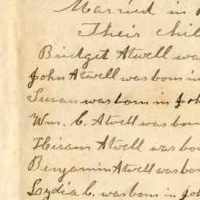 Married in
Their chil
Bridget Atwell wa
John Atwell was born in
Susan was born in Joh
Wm. C. Atwell was bor
Hiram Atwell was bor
Benjamin Atwell was bor
Lydia C. was born in Joh